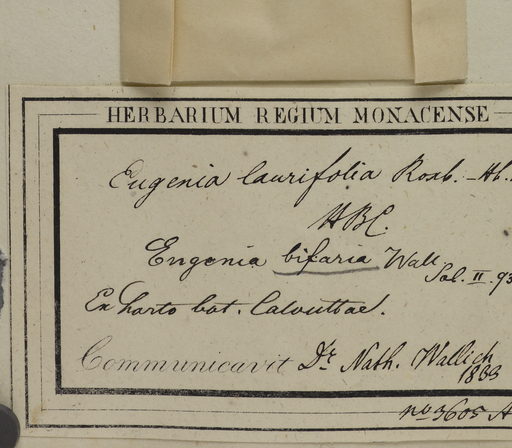 HERBARIUM REGIUM MONACENSE
Eugenia laurifolia Roxb. - Hb.
HBC.
Eugenia bifaria Wall.
Sal. II. 93
Ex horto bot. Calcuttae.
Communicavit Dr Nath. Wallich
1833
no 3605 A